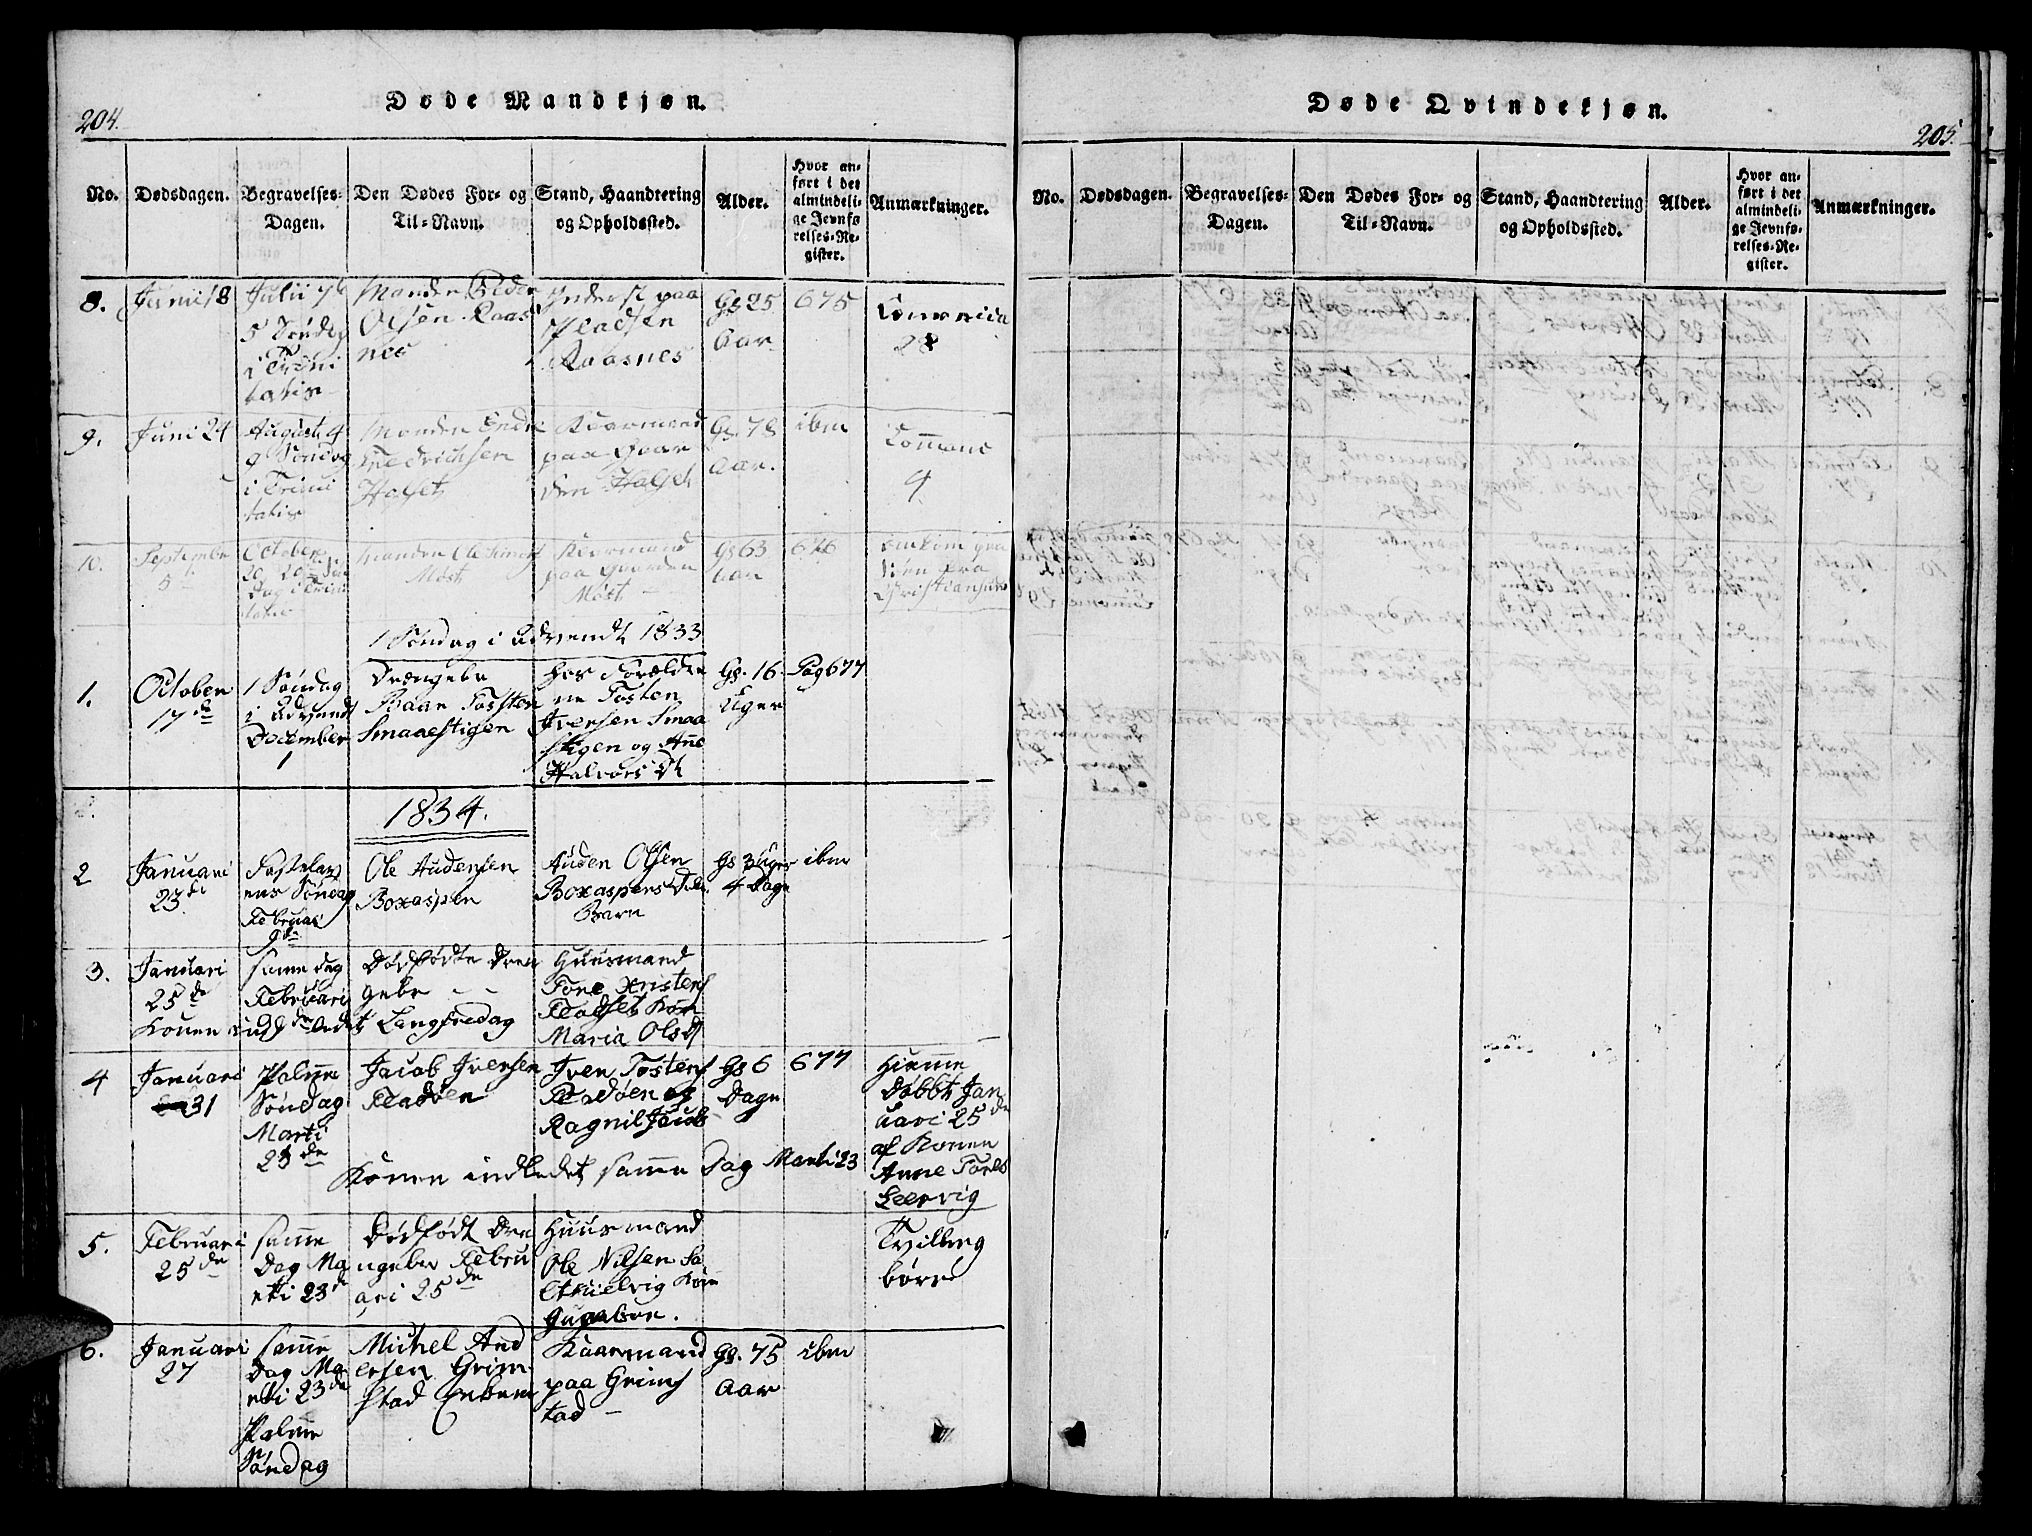 204.
Døde Mandkjøn.
No. Dødsdagen. Begravelses-Dagen. Den Dødes For- og Til-Navn. Stand, Haandtering og Opholdssted. Alder. Hvor anført i det almindelige Jevnførelses-Register. Anmærkninger.
8. Junii 18
Julii 7
5 Søndag
i Trini
tatis
Manden Peder
Olsen Raas
nes
Inderst paa
Pladsen
Raasnes
Gs 25
Aar
675
28
9. Juni 24
August 4
9 Søndag
i Trini
tatis
Manden Endre
Fredrichsen
Halset
Kaarmand
paa Gaar
den Halset
Gs. 78
Aar.
ibm
4
10. Septembr
5
October
20 20 Søn
Dag i Trini
tatis
Manden Ole Simens
Møst
Kaarmand
paa Gaarden
Møst
Gs 63
aar
676
Christiansund
1 Søndag i Advendt 1833
1. October
17de
1 Søndag
i Advendt
December
1
Drængebr
Barn Tosten
Smaaestigen
hos Forældre
ne Tosten
Iversen Smaa
stigen og Ane
Halvors Dt
Gs. 16
Uger
Pag 677
1834.
2 Januari
23di
Fastelav
ens Søndag
Februar
9de
Ole Audensen
Boxaspen
Auden Olsen
Boxaspens
Barn
Gs 3 Uger
4 Dage
ibm
3. Januari
25de
samme dag
Februari
Dødfødte Dren
gebr
Huusmand
Tore Kristens
Fladset Kone
Maria Olsd
Konen Langfredag
4 Januari
31
Palme
Søndag
Marti
23de
Jacob Iversen
Fladøen
Iver Tostens
Fladøen og
Ragnil Jacob
Gs 6
Dage
677
Hiemme
Døbbt Jan
uari 25de
af Konen
Anne Tores
Leervig
Konen indledet samme Dag Marti 23
5. Februari
25de
samme
Dag Ma
rti 23de
Dødfødt Dre
ngebr Febru
ari 25de
Huusmand
Ole Nilsen
Kone
Guraboe.
Tvilling
børn
6. Januari
27
samme
Dag Ma
rti 23de
Palme
Søndag
Michel And
ersen Grim
stad Enkem
Kaarmand
paa Grims
tad
Gs. 75
Aar
ibm
205.
Døde Qvindekjøn.
No. Dødsdagen. Begravelses-Dagen. Den Dødes For- og Til-Navn. Stand, Haandtering og Opholdssted. Alder. Hvor anført i det almindelige Jevnførelses-Register. Anmærkninger.